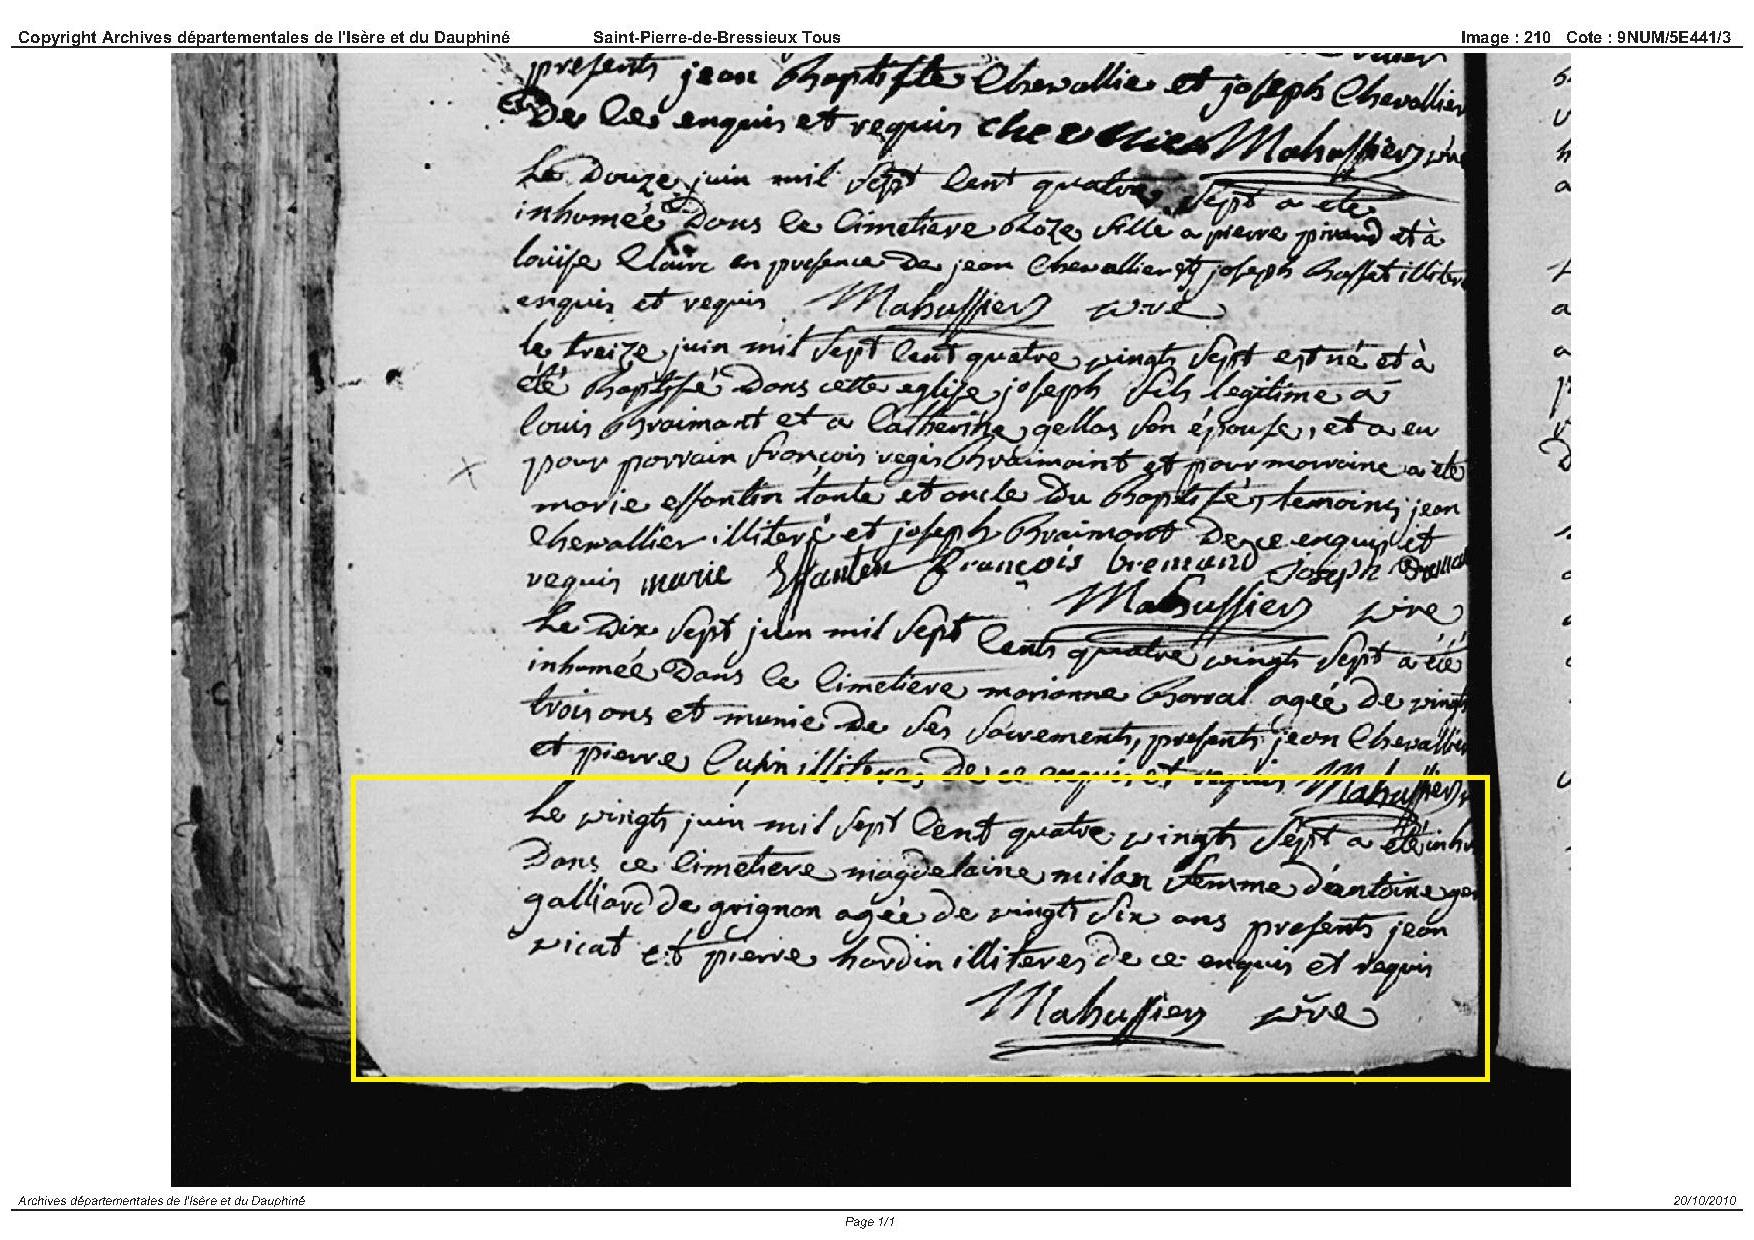 Copyright Archives départementales de l'Isère et du Dauphiné Saint-Pierre-de-Bressieux Tous Image : 210 Cote : 9NUM/5E441/3
presents jean Baptiste Chevallier et joseph Chevallier
De ce enquis et requis chevallier Mahussier
Le Douze juin mil sept Cent quatre sept a ete
inhumée Dans le Cimetiere Roze fille a pierre et à
louise Claire en presence De jean Chevallier et joseph illiter
enquis et requis Mahussier
le treize juin mil sept Cent quatre vingts sept est né et à
été Baptisé Dans cette eglise joseph fils legitime a
louis Braimant et a Catherine gellas son épouse, et a eu
pour parrain françois regis Braimant et pour marraine a eté
marie effantin tante et oncle Du Baptisé, temoins jean
Chevallier illiteré et joseph Braimant De ce enquis et
requis marie Effanten françois bremand Joseph
Mahussier
Le Dix sept juin mil sept Cents quatre vingts sept a été
inhumée Dans le Cimetiere marianne Barral agée De vingt
trois ans et munie De ses sacrements, presents jean Chevallier
et pierre Cupin illiteres De ce enquis et requis Mahussier
Le vingts juin mil sept Cent quatre vingts sept a été inhu
Dans ce Cimetiere magdelaine milan femme d'antoine
galliard De grignon agée De vingts six ans presents jean
vicat et pierre hardin illiteres De ce enquis et requis
Mahussier
Archives départementales de l'Isère et du Dauphiné 20/10/2010
Page 1/1